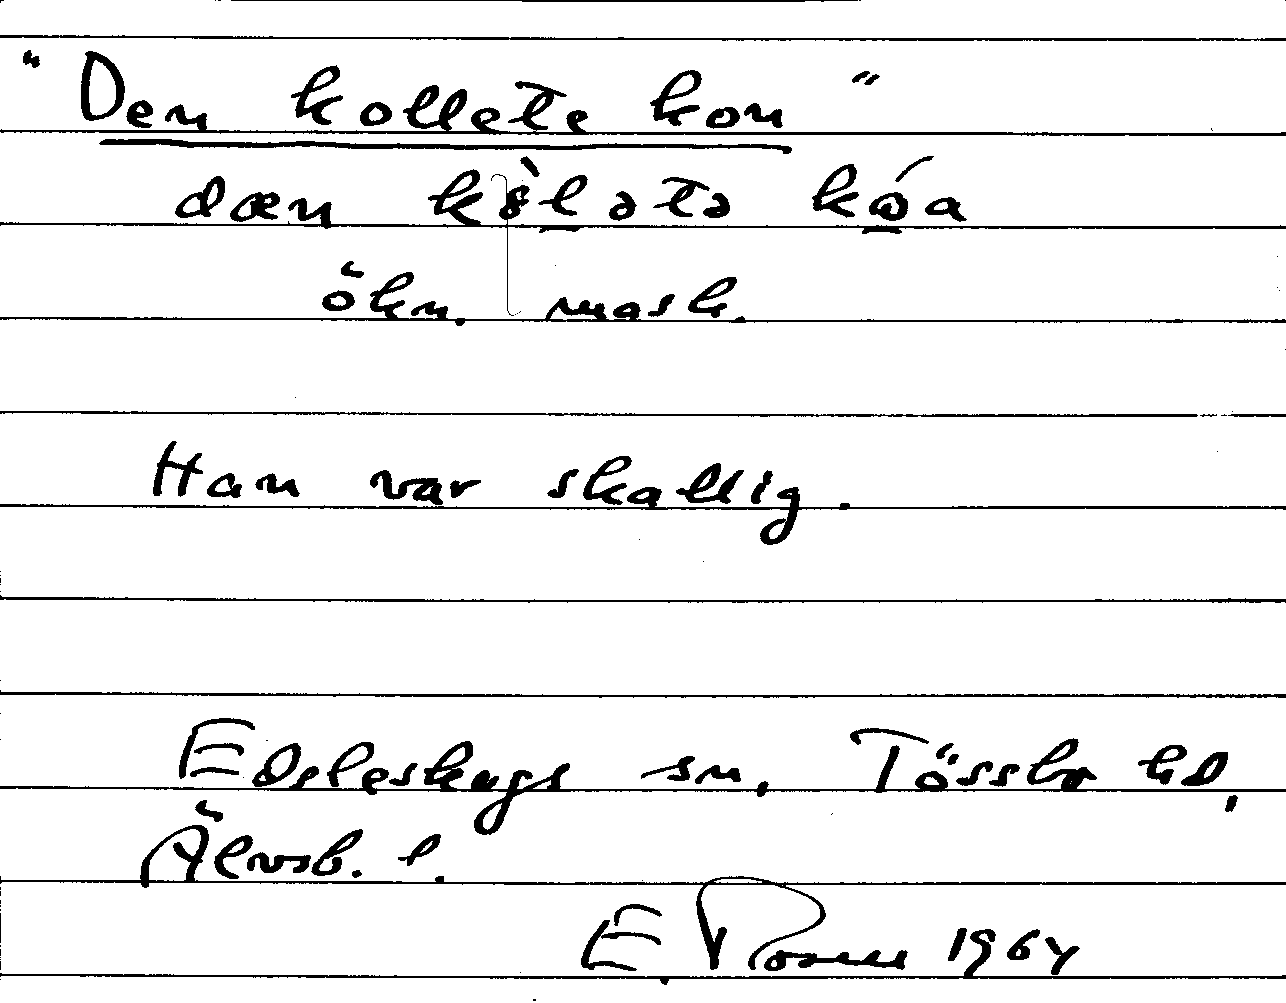 "Den kollete kon"
dæn kòlətə kóa
ökn. mask.
Han var skallig.
Edsleskogs sn, Tössbo hd,
Älvsb. l.
E. 1964